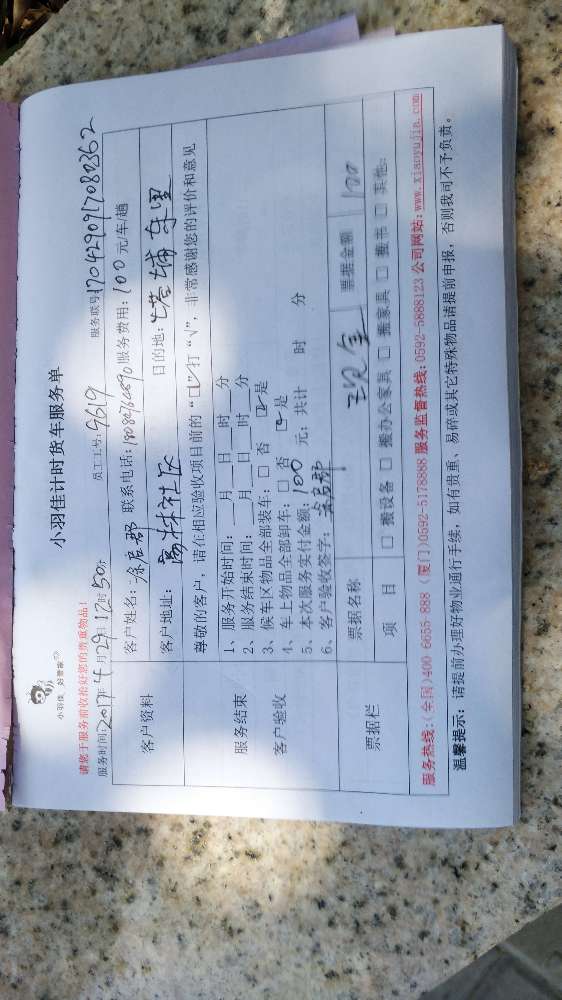 小羽佳 好管家
小羽佳计时货车服务单
请您于服务前收拾好您的贵重物品!
服务时间:2017年4月29日12时50分 员工工号:9619 服务联号1704290917082362
客户资料
客户姓名: 联系电话: 服务费用:100元/车/趟
客户地址: 社区 目的地: 埔东里
服务结束
客户验收
尊敬的客户,请在相应验收项目前的“□”打“√”,非常感谢您的评价和意见
1、服务开始时间:___月___日___时___分
2、服务结束时间:___月___日___时___分
3、候车区物品全部装车:□ 否 ☑ 是
4、车上物品全部卸车:□ 否 ☑ 是
5、本次服务实付金额:100 元;共计 时 分
6、客户验收签字:
票据栏
票据名称 现金 票据金额 100
项 目 □ 搬设备 □ 搬办公家具 □ 搬家具 □ 搬书 □ 其他:
服务热线:(全国)400-6655-888 (厦门)0592-5178888 服务监督热线:0592-5888123 公司网站:www.xiaoyujia.com
温馨提示:请提前办理好物业通行手续,如有贵重、易碎或其它特殊物品请提前申报,否则我司不予负责。